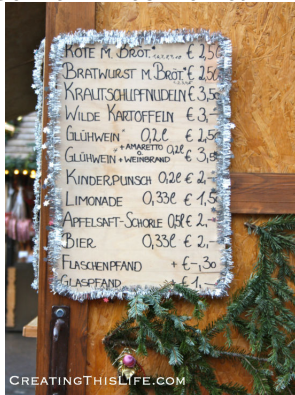 ROTE M. BRÖT. € 2,50
BRATWURST M. BRÖT. € 2,50
KRAUTSCHUPFNUDELN € 3,5
WILDE KARTOFFELN € 3,-
GLÜHWEIN 0,2ℓ € 2,5
GLÜHWEIN + AMARETTO O. + WEINBRAND 0,2ℓ € 3,5
KINDERPUNSCH 0,2ℓ € 2,-
LIMONADE 0,33ℓ € 1,5
APFELSAFT-SCHORLE 0,5ℓ € 2,-
BIER 0,33ℓ € 2,-
FLASCHENPFAND + €-,30
GLASPFAND € 1,-
CREATINGTHISLIFE.COM